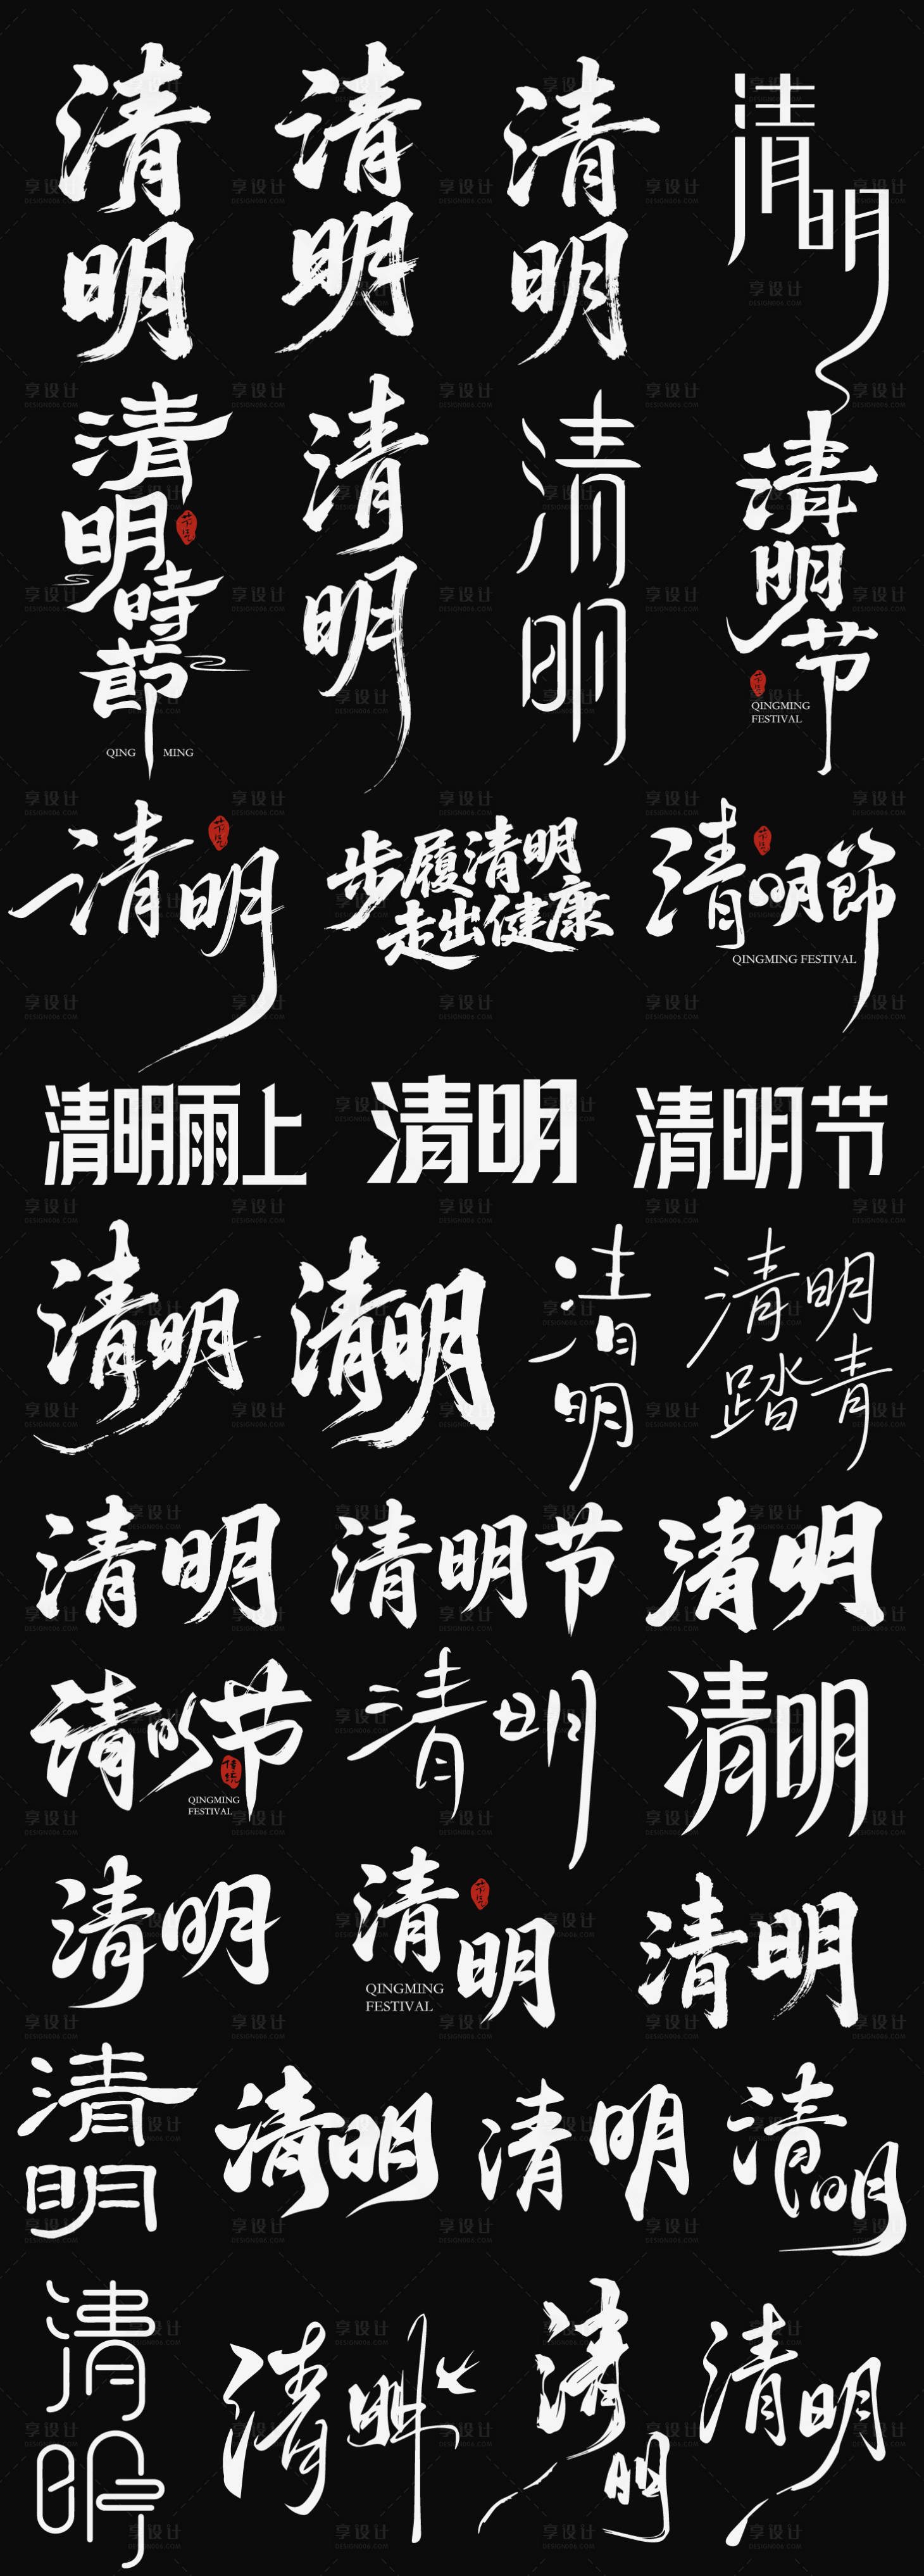 清明
清明
清明
清明
清明時節
QING MING
清明
清明
清明节
QINGMING
FESTIVAL
清明
步履清明
走出健康
清明節
QINGMING FESTIVAL
清明雨上
清明
清明节
清明
清明
清明
清明
踏青
清明
清明节
清明
清明节
传统
QINGMING
FESTIVAL
清明
清明
清明
清明
QINGMING
FESTIVAL
清明
清明
清明
清明
清明
清明
清明
清明
清明
享设计
DESIGN006.COM